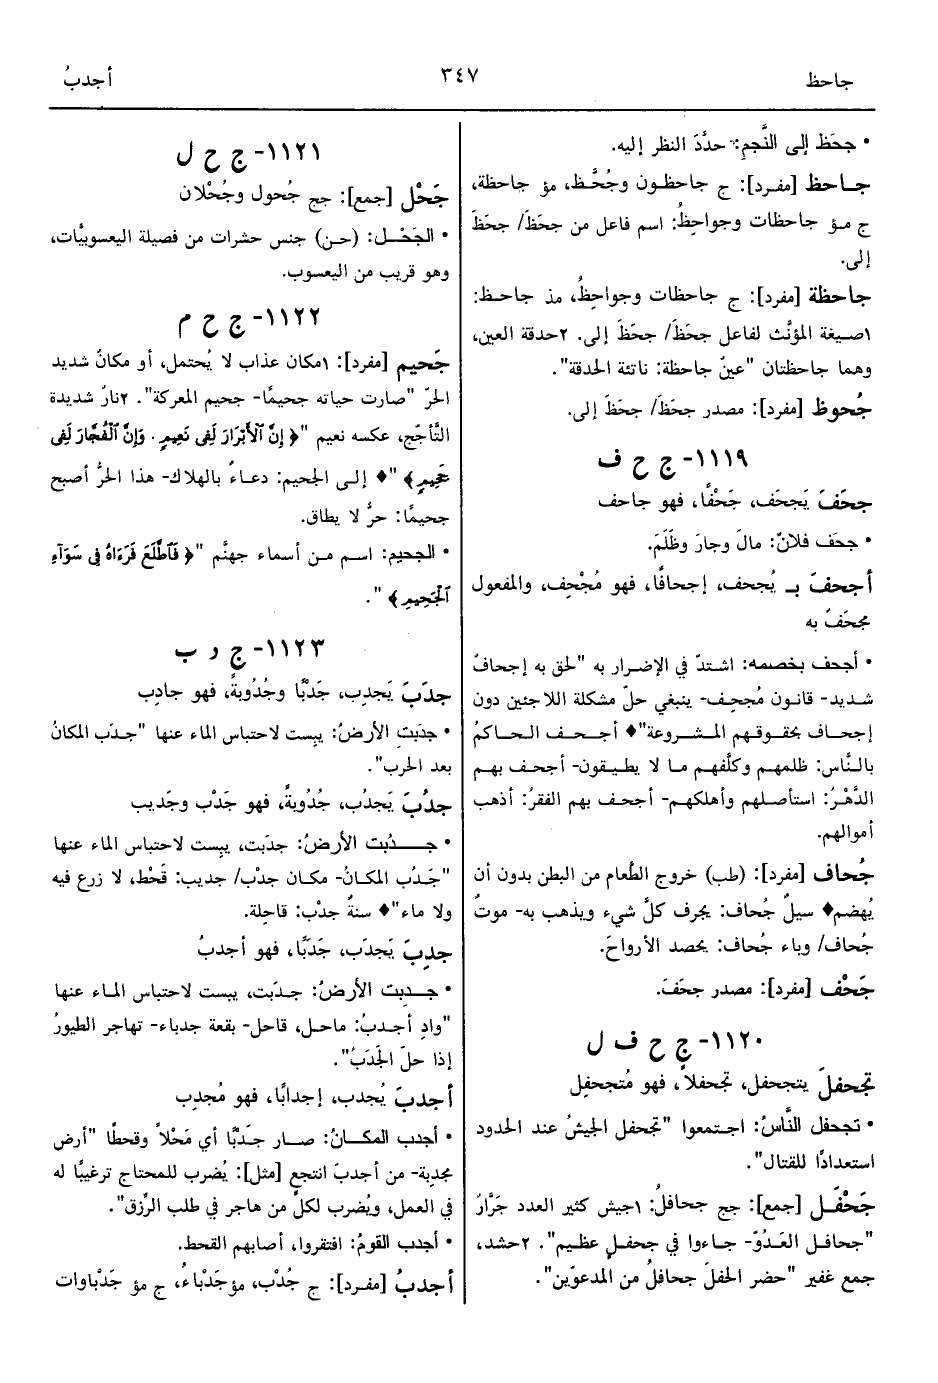 جاحظ
٣٤٧
أجدبُ
• جحَظ إلى النَّجمِ: حدَّدَ النظر إليه.
جـاحظ [مفـرد]: ج جاحظـون وجُحَّـظ، مؤ جاحظة،
ج مـؤ جاحظات وجواحِظُ: اسم فاعل من جحَظَ/ جحَظَ
إلى.
جاحظة [مفرد]: ج جاحظات وجواحِظُ، مذ جاحـظ:
١صيغة المؤنَّث لفاعل جحَظَ/ جحَظَ إلى. ٢حدقة العين،
وهما جاحظتان "عينٌ جاحظة: ناتئة الحدقة".
جُحوظ [مفرد]: مصدر جحَظَ/ جحَظَ إلى.
١١١٩- ج ح ف
جحَفَ يَجحَف، جَحْفًا، فهو جاحف
• جحَف فلانٌ: مالَ وجارَ وظَلَمَ.
أجحفَ بـ يُجحف، إجحافًا، فهو مُجْحِف، والمفعول
مجحَفٌ به
• أجحف بخصمه: اشتدّ في الإضرار به "لحق به إجحافٌ
شديد- قانـون مُجحِـف- ينبغي حلّ مشكلة اللاجئين دون
إجحـاف بحقوقـهم المـشروعة"♦ أجـحـف الـحـاكمُ
بالنَّاس: ظلمهم وكلَّفهم مـا لا يطـيقون- أجحف بهم
الدَّهْرُ: استأصلهم وأهلكهم- أجحف بهم الفقرُ: أذهب
أموالهم.
جُحاف [مفرد]: (طب) خروج الطَّعام من البطن بدون أن
يُهضم♦ سيلٌ جُحاف: يجرف كلَّ شيء ويذهب به- موتٌ
جُحاف/ وباء جُحاف: يحصد الأرواحَ.
جَحْف [مفرد]: مصدر جحَفَ.
١١٢٠- ج ح ف ل
تجحفلَ يتجحفل، تجحفلاً، فهو مُتجحفِل
• تجحفل النَّاسُ: اجـتمعوا "تجحفل الجيشُ عند الحدود
استعدادًا للقتال".
جَحْفَـل [جمع]: جج جحافلُ: ١جيش كثير العدد جَرَّارٌ
"جحافـل العَـدُوّ- جـاءوا في جحفـلٍ عظـيم". ٢حشد،
جمع غفير "حضر الحفلَ جحافلُ من المدعوّين".
١١٢١- ج ح ل
جَحْل [جمع]: جج جُحول وجُحْلان
• الجَحْـل: (حـن) جنس حشرات من فصيلة اليعسوبيَّات،
وهو قريب من اليعسوب.
١١٢٢- ج ح م
جَحيم [مفرد]: ١مكان عذاب لا يُحتمل، أو مكانٌ شديد
الحرّ "صارت حياته جحيمًا- جحيم المعركة". ٢نارٌ شديدة
التَّأجّج، عكسه نعيم "﴿ إِنَّ ٱلْأَبْرَارَ لَفِى نَعِيمٍ. وَإِنَّ ٱلْفُجَّارَ لَفِى
جَحِيمٍ﴾ "♦ إلـى الجحيم: دعـاءٌ بالهلاك- هذا الحرُّ أصبح
جحيمًا: حرٌّ لا يطاق.
• الجحيم: اسـم مـن أسماء جهنَّم "﴿ فَٱطَّلَعَ فَرَءَاهُ فِى سَوَآءِ
ٱلْجَحِيمِ﴾ ".
١١٢٣- ج د ب
جدَبَ يَجدِب، جَدْبًا وجُدُوبةً، فهو جادِب
• جدَبتِ الأرضُ: يبِست لاحتباس الماء عنها "جـدَب المكانُ
بعد الحرب".
جدُبَ يَجدُب، جُدُوبةً، فهو جَدْب وجَديب
• جـــدُبت الأرضُ: جدَبت، يبِست لاحتباس الماء عنها
"جَـدُب المكـانُ- مكـان جدْب/ جديب: قَحْط، لا زرع فيه
ولا ماء"♦ سنةٌ جدْب: قاحِلة.
جدِبَ يَجدَب، جَدَبًا، فهو أجدبُ
• جــدِبت الأرضُ: جـدَبت، يبست لاحتباس المـاء عنها
"وادٍ أجـدبُ: ماحـل، قاحل- بقعة جدباء- تهاجر الطيورُ
إذا حلّ الجَدَبُ".
أجدبَ يُجدب، إجدابًا، فهو مُجدِب
• أجدب المكـانُ: صـار جـدْبًا أي مَحْلاً وقحطًا "أرض
مجدِبة- من أجدبَ انتجع [مثل]: يُضرب للمحتاج ترغيبًا له
في العمل، ويُضرب لكلِّ من هاجر في طلب الرِّزق".
• أجدب القومُ: افتقروا، أصابهم القحط.
أجدبُ [مفرد]: ج جُدْب، مؤ جَدْباءُ، ج مؤ جَدْباوات